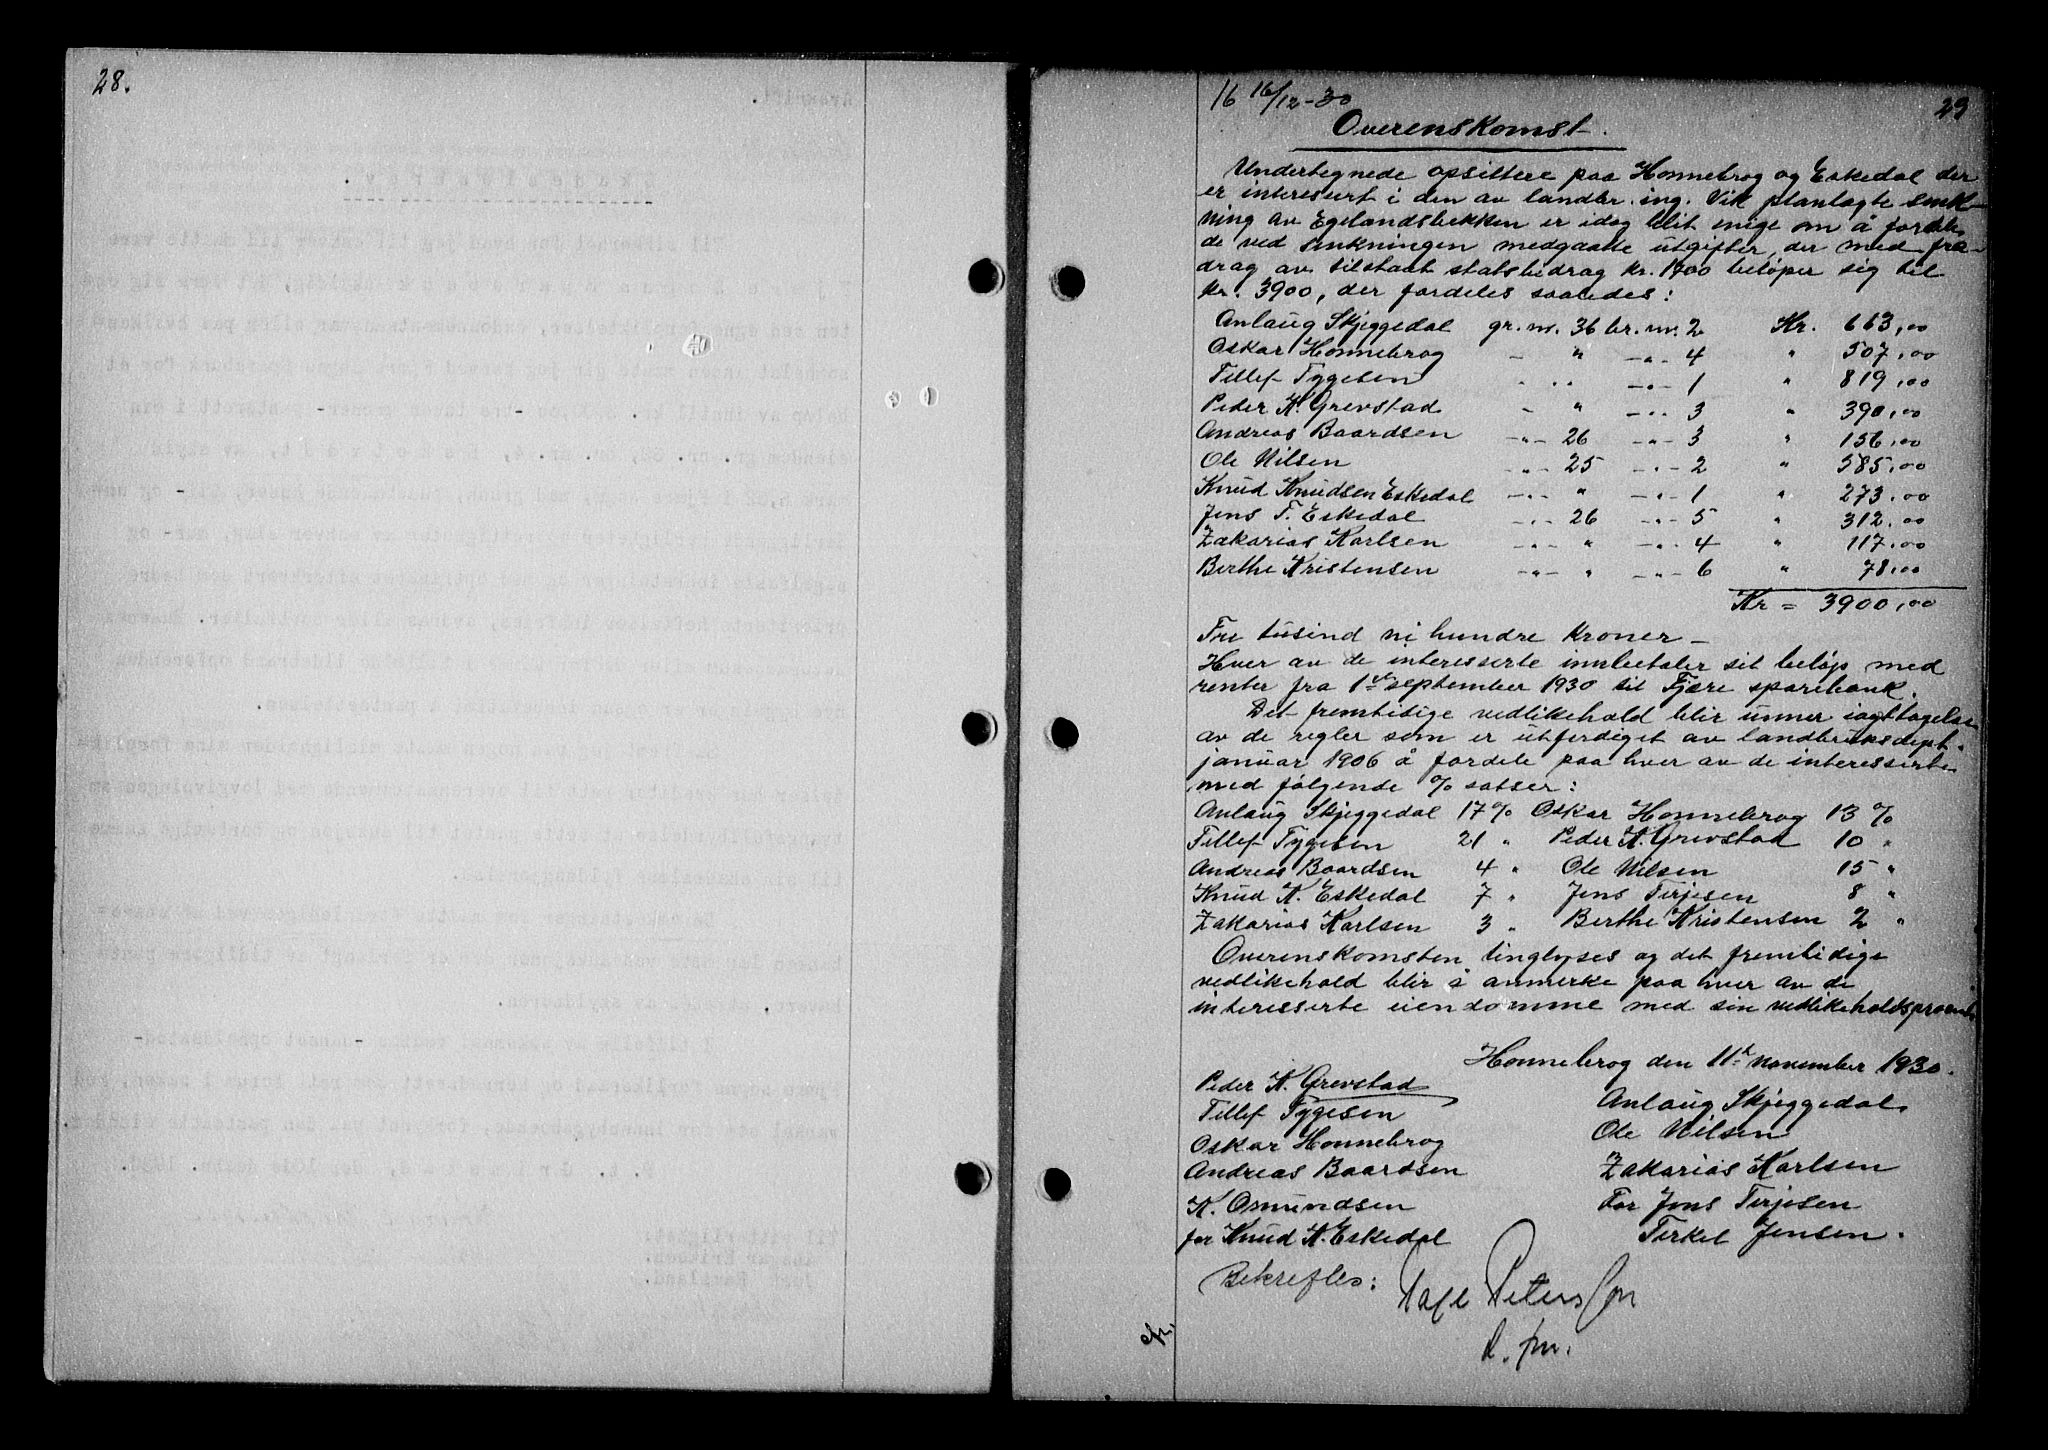 28.
29
16 16/12-30
Overenskomst.
Undertegnede opsittere paa Honnebrog og Eskedal der
er interesert i den av landbr. ing. Vik planlagte senk-
ning av Egelandsbekken er idag blit enige om å forde-
de ved senkningen medgaatte utgifter, der med fra-
drag av tilstaat statsbidrag kr. 1700 beløper sig til
kr. 3900, der fordeles saaledes:
Anlaug Skjeggedal gr. nr. 36 br. nr. 2 Kr. 663,00
Oskar Honnebrog - " -"- 4 " 507,00
Tellef Tygesen " " -"- 1 " 819,00
Peder K. Grevstad - " -"- 3 " 390,00
Andreas Baardsen -"- 26 -"- 3 " 156,00
Ole Nilsen -"- 25 -"- 2 " 585,00
Knud Knudsen Eskedal -"- " -"- 1 " 273,00
Jens T. Eskedal -"- 26 -"- 5 " 312,00
Zakarias Karlsen -"- " -"- 4 " 117,00
Berthe Kristensen -"- " -"- 6 " 78,00
Kr = 3900,00
Tre tusind ni hundre kroner -
Hver av de interesserte innbetaler sit beløp med
renter fra 1ste september 1930 til Fjære sparebank.
Det fremtidige vedlikehold blir unner iagttagelse
av de regler som er utferdiget av landbruksdept.
januar 1906 å fordele paa hver av de interesserte
med følgende % satser:
Anlaug Skjeggedal 17 % Oskar Honnebrog 13 %
Tellef Tygesen 21 " Peder K. Grevstad 10 "
Andreas Baardsen 4 " Ole Nilsen 15 "
Knud K. Eskedal 7 " Jens Terjesen 8 "
Zakarias Karlsen 3 " Berthe Kristensen 2 "
Overenskomsten tinglyses og det fremtidige
vedlikehold blir å anmerke paa hver av de
interesserte eiendomme med sin vedlikeholdsprocent.
Honnebrog den 11te november 1930.
Peder K. Grevstad
Anlaug Skjeggedal.
Tellef Tygesen
Ole Nilsen
Oskar Honnebrog
Zakarias Karlsen
Andreas Baardsen
For Jens Terjesen
K. Osmundsen
Terkel Jensen.
for Knud K. Eskedal
Bekreftes: